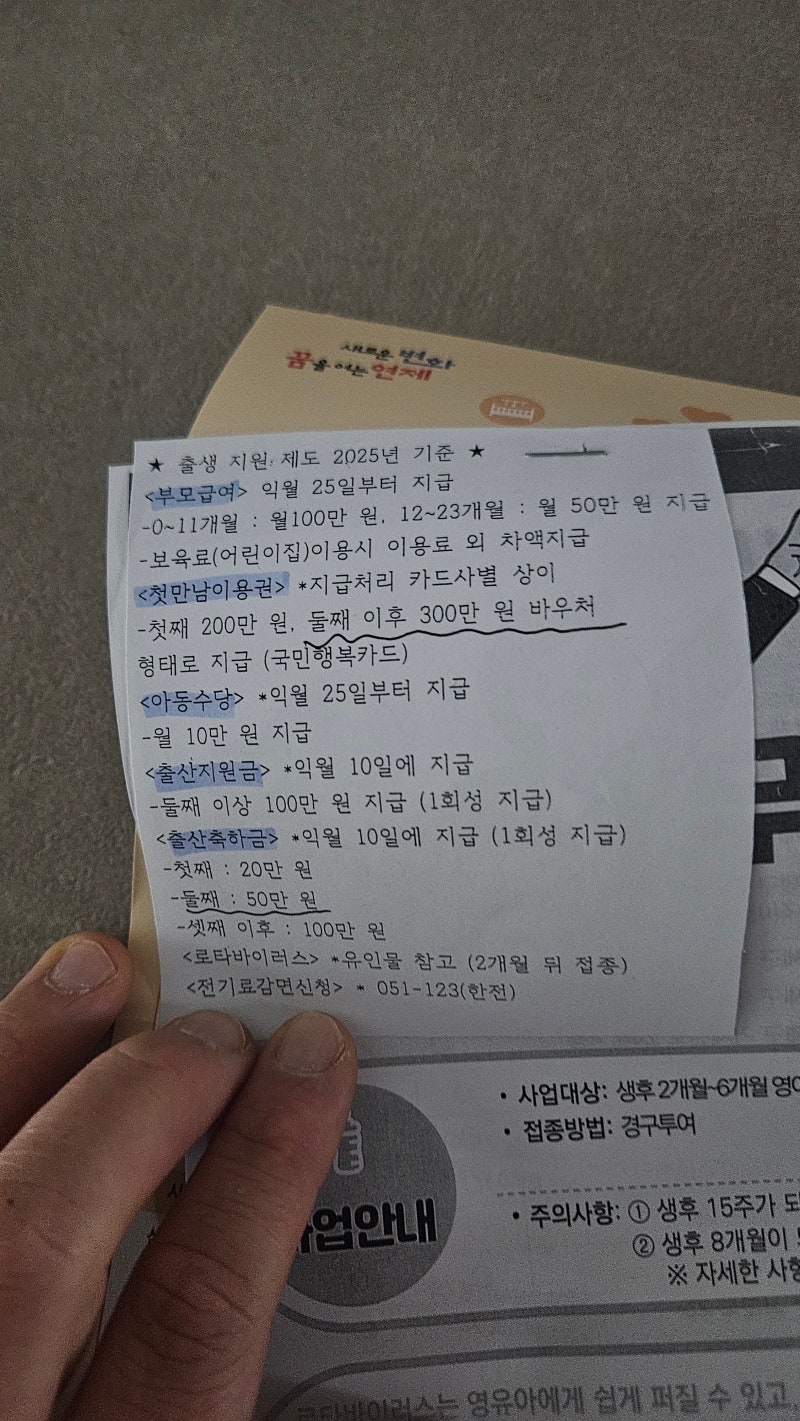 새로운 변화
꿈을 여는 현제
★ 출생 지원 제도 2025년 기준 ★
<부모급여> 익월 25일부터 지급
-0~11개월 : 월100만 원, 12~23개월 : 월 50만 원 지급
-보육료(어린이집)이용시 이용료 외 차액지급
<첫만남이용권> *지급처리 카드사별 상이
-첫째 200만 원, 둘째 이후 300만 원 바우처
형태로 지급 (국민행복카드)
<아동수당> *익월 25일부터 지급
-월 10만 원 지급
<출산지원금> *익월 10일에 지급
-둘째 이상 100만 원 지급 (1회성 지급)
<출산축하금> *익월 10일에 지급 (1회성 지급)
-첫째 : 20만 원
-둘째 : 50만 원
-셋째 이후 : 100만 원
<로타바이러스> *유인물 참고 (2개월 뒤 접종)
<전기료감면신청> * 051-123(한전)
• 사업대상: 생후 2개월~6개월 영아
• 접종방법: 경구투여
업안내
• 주의사항: ① 생후 15주가 되
② 생후 8개월이
※ 자세한 사항
로타바이러스는 영유아에게 쉽게 퍼질 수 있고,